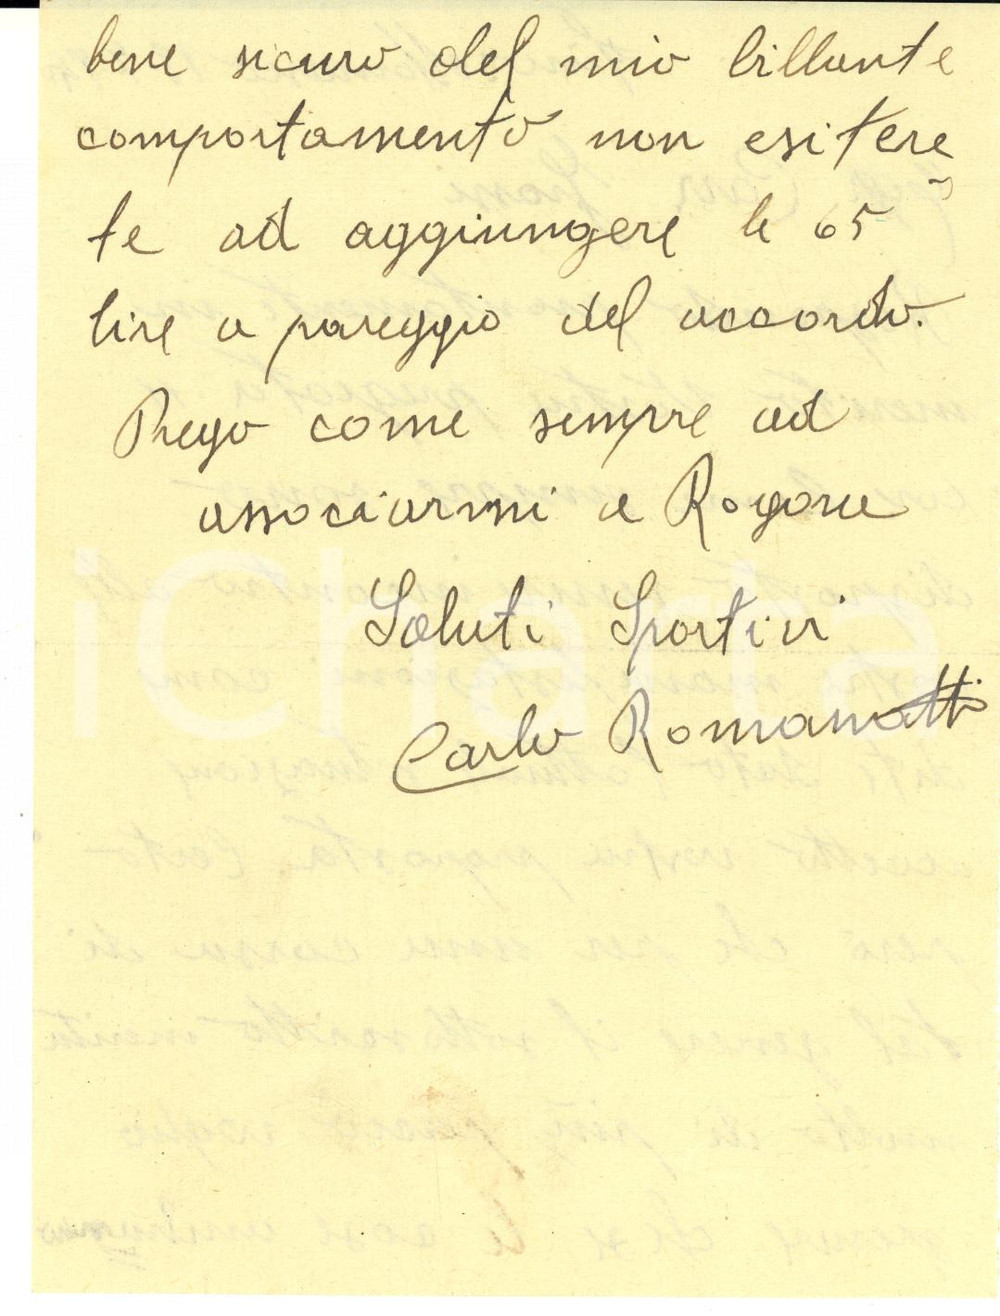 bene sicuro del mio billante
comportamento non esitere
te ad aggiungere le 65
lire a pareggio del accordo.
Prego come sempre ad
associarmi a Rogora
Saluti Sportivi
Carlo Romanatti
iCharta